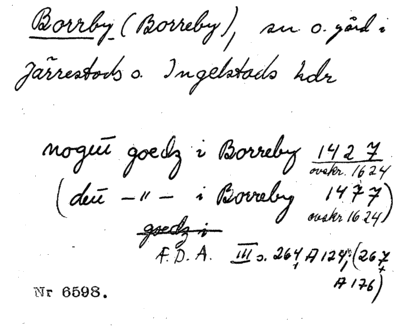 Borrby (Borreby), sn o. gård i
Järrestads o. Ingelstads hdr
noguit goedz i Borreby 1427
avskr. 1624
(deñ -"- i Borreby 1477)
avskr 1624)
goedz i
F. D. A. III s. 264, A 124; (267
A 176)
Nr 6598.